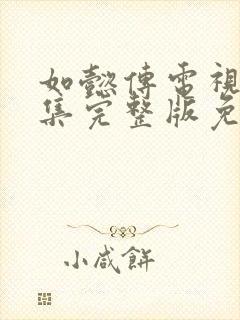 如懿傳電視
集完整版免
小咸餅